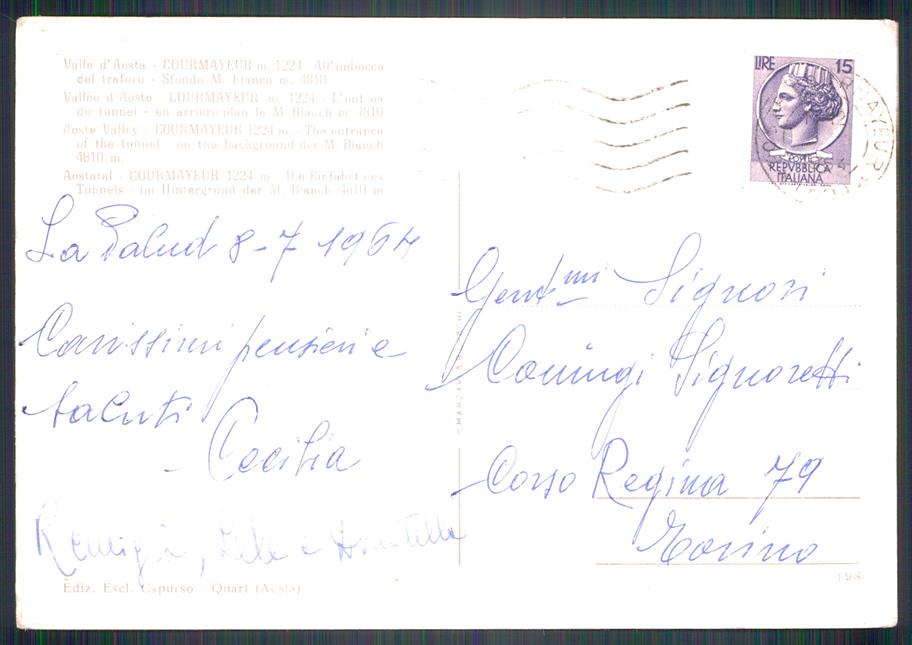 Valle d'Aosta - COURMAYEUR m. 1224 - All'imbocco
del traforo - Sfondo M. Bianco m. 4810
Vallée d'Aoste - COURMAYEUR m. 1224 - L'entrée
du tunnel - en arrière plan le M. Blanch m. 4810
Aoste Valley - COURMAYEUR 1224 m. - The entrance
of the tunnel on the background der M. Bianch
4810 m.
Aostatal - COURMAYEUR 1224 m. Die Einfahrt des
Tunnels - im Hintergrund der M. Bianch 4810 m
La Palud 8-7 1964
Carissimi pensieri e
saluti
- Cecilia
Remigia, Lele e Donatella
Ediz. Escl. Capurso - Quart (Aosta)
LIRE 15
REPVBBLICA
ITALIANA
Gent.mi Signori
Coniugi Signoretti
Corso Regina 79
Torino
198